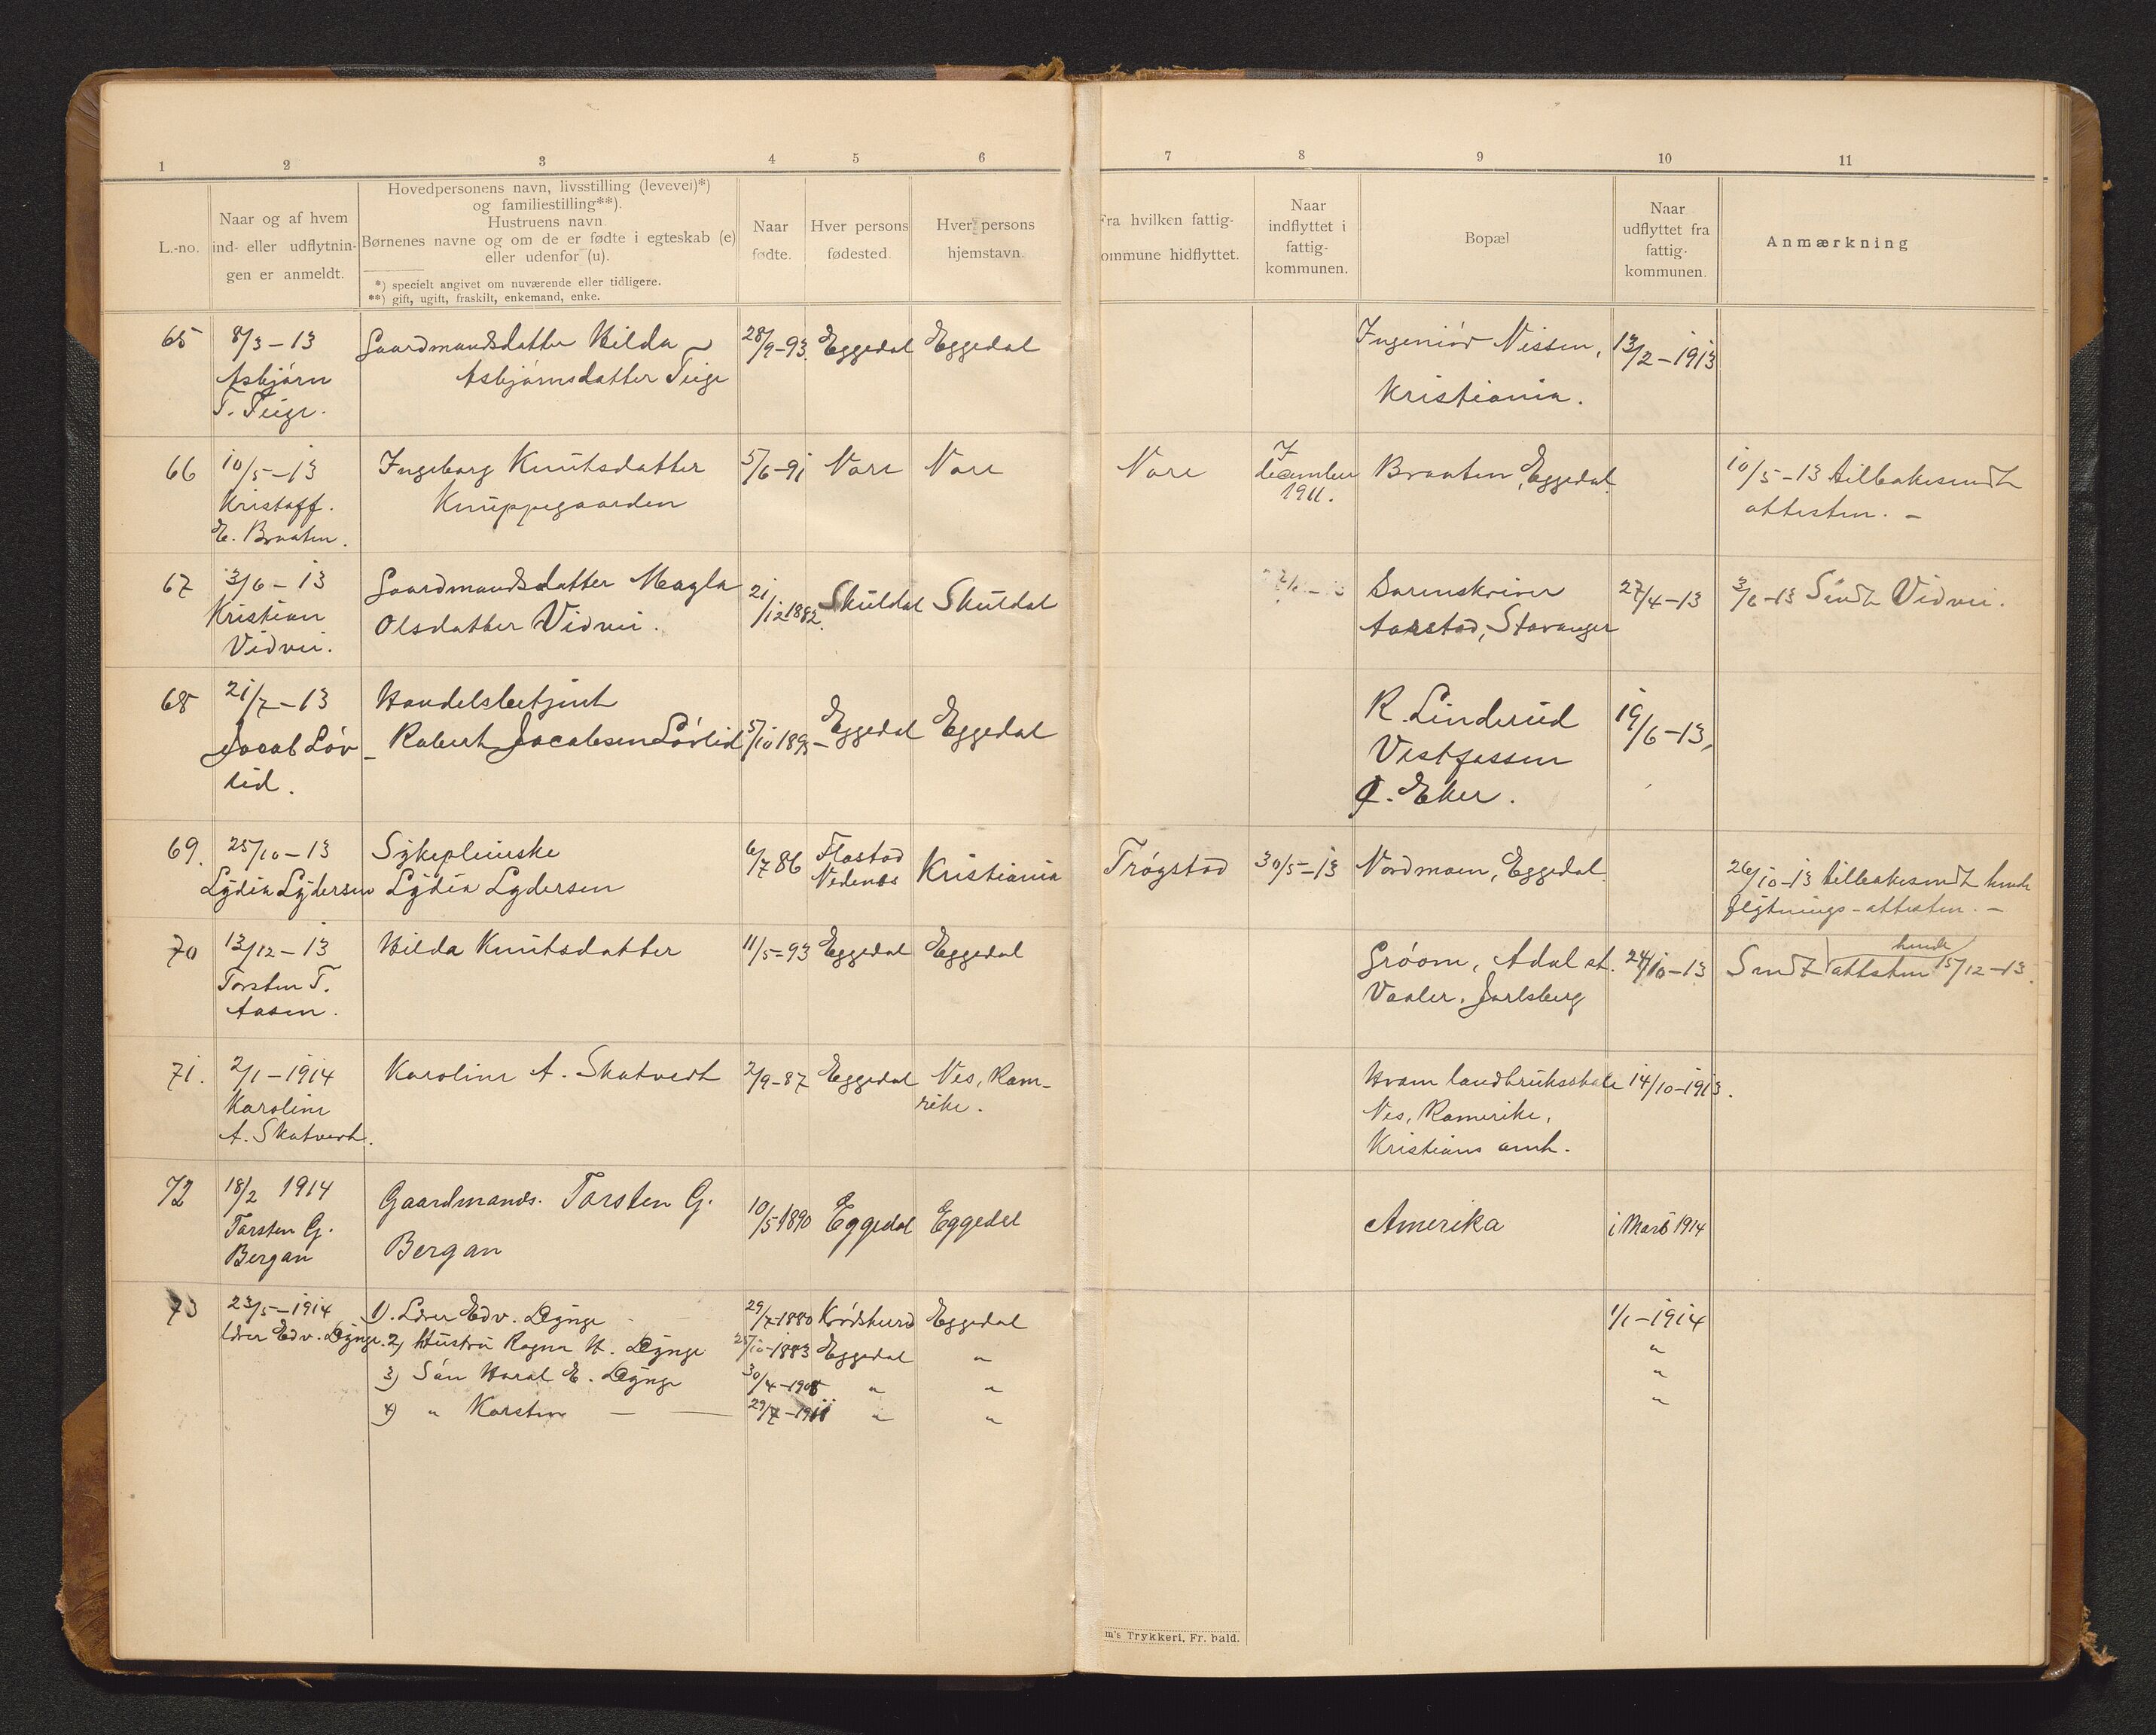 1 2 3 4 5 6 7 8 9 10 11
L.-no.
Naar og af hvem
ind- eller udflytnin-
gen er anmeldt.
Hovedpersonens navn, livsstilling (levevei)*)
og familiestilling**).
Hustruens navn.
Børnenes navne og om de er fødte i egteskab (e)
eller udenfor (u).
*) specielt angivet om nuværende eller tidligere.
**) gift, ugift, fraskilt, enkemand, enke.
Naar
fødte.
Hver persons
fødested.
Hver persons
hjemstavn.
Fra hvilken fattig-
ommune hidflyttet.
Naar
indflyttet i
fattig-
kommunen.
Bopæl
Naar
udflyttet fra
fattig-
kommunen.
Anmærkning
65 8/3-13 Gaardmandsdatter Hilda 28/9-93. Eggedal Eggedal Ingeniör Nissen, 13/2-1913
Asbjörn Asbjörnsdatter Teige
T. Teige. Kristiania.
66 10/5-13 Ingeborg Knutsdatter 5/6-91 Nore Nore Nore I Braaten, Eggedal. 10/5-13 tilbakesendt
Kristoff. Knuppegaarden december attesten. -
E. Braaten. 1911.
67 3/6-13 Gaardmandsdatter Magla 21/12 1892. Skuldal Skuldal Sorenskriver 27/4-13 3/6-13 Sendt Vidvei.
Kristian Olsdatter Vidvei. Aarstad, Stavanger
Vidvei.
68 21/7-13 Handelsbetjent R. Linderud 19/6-13,
Jacob Löv- Robert Jacobsen Lövlid 5/10 1893- Eggedal Eggedal Vestfossen
lid. Ø. Eker.
69. 25/10-13 Sykepleierske 6/7 86 Flostad Kristiania Trögstad 30/5-13 Nordmoen, Eggedal. 26/10-13 tilbakesendt hende
Lydia Lydersen Lydia Lydersen Nedenes flytnings-attesten. -
70 13/12-13 Hilda Knutsdatter 11/5-93 Eggedal Eggedal Gröom, Adal st. 24/10-13 Sendt hende attsten 15/12-13.
Torsten T. Vaaler. Jarlsberg
Aasen.
71. 2/1-1914 Karoline A. Skatvedt 2/9-87 Eggedal Nes, Rom- Hvam landbruksskole 14/10-1913.
Karoline rike. Nes, Romerike,
A. Skatvedt. Kristians amt.
72 18/2 1914 Gaardmands. Torsten G. 10/5 1890 Eggedal Eggedal Amerika i Mars 1914
Torsten G. Bergan
Bergan
73 23/5-1914 1). Lærer Edv. Lynge 29/7-1880 Krödsherd Eggedal 1/1-1914
lærer Edv. Lynge. 2) Hustru Ragna H. Lynge 25/10-1883 Eggedal " "
3) Sön Haral E. Lynge 30/4-1908 " " "
4) " Karsten — — 29/7-1911 " " "
m's Trykkeri, Fr. hald.